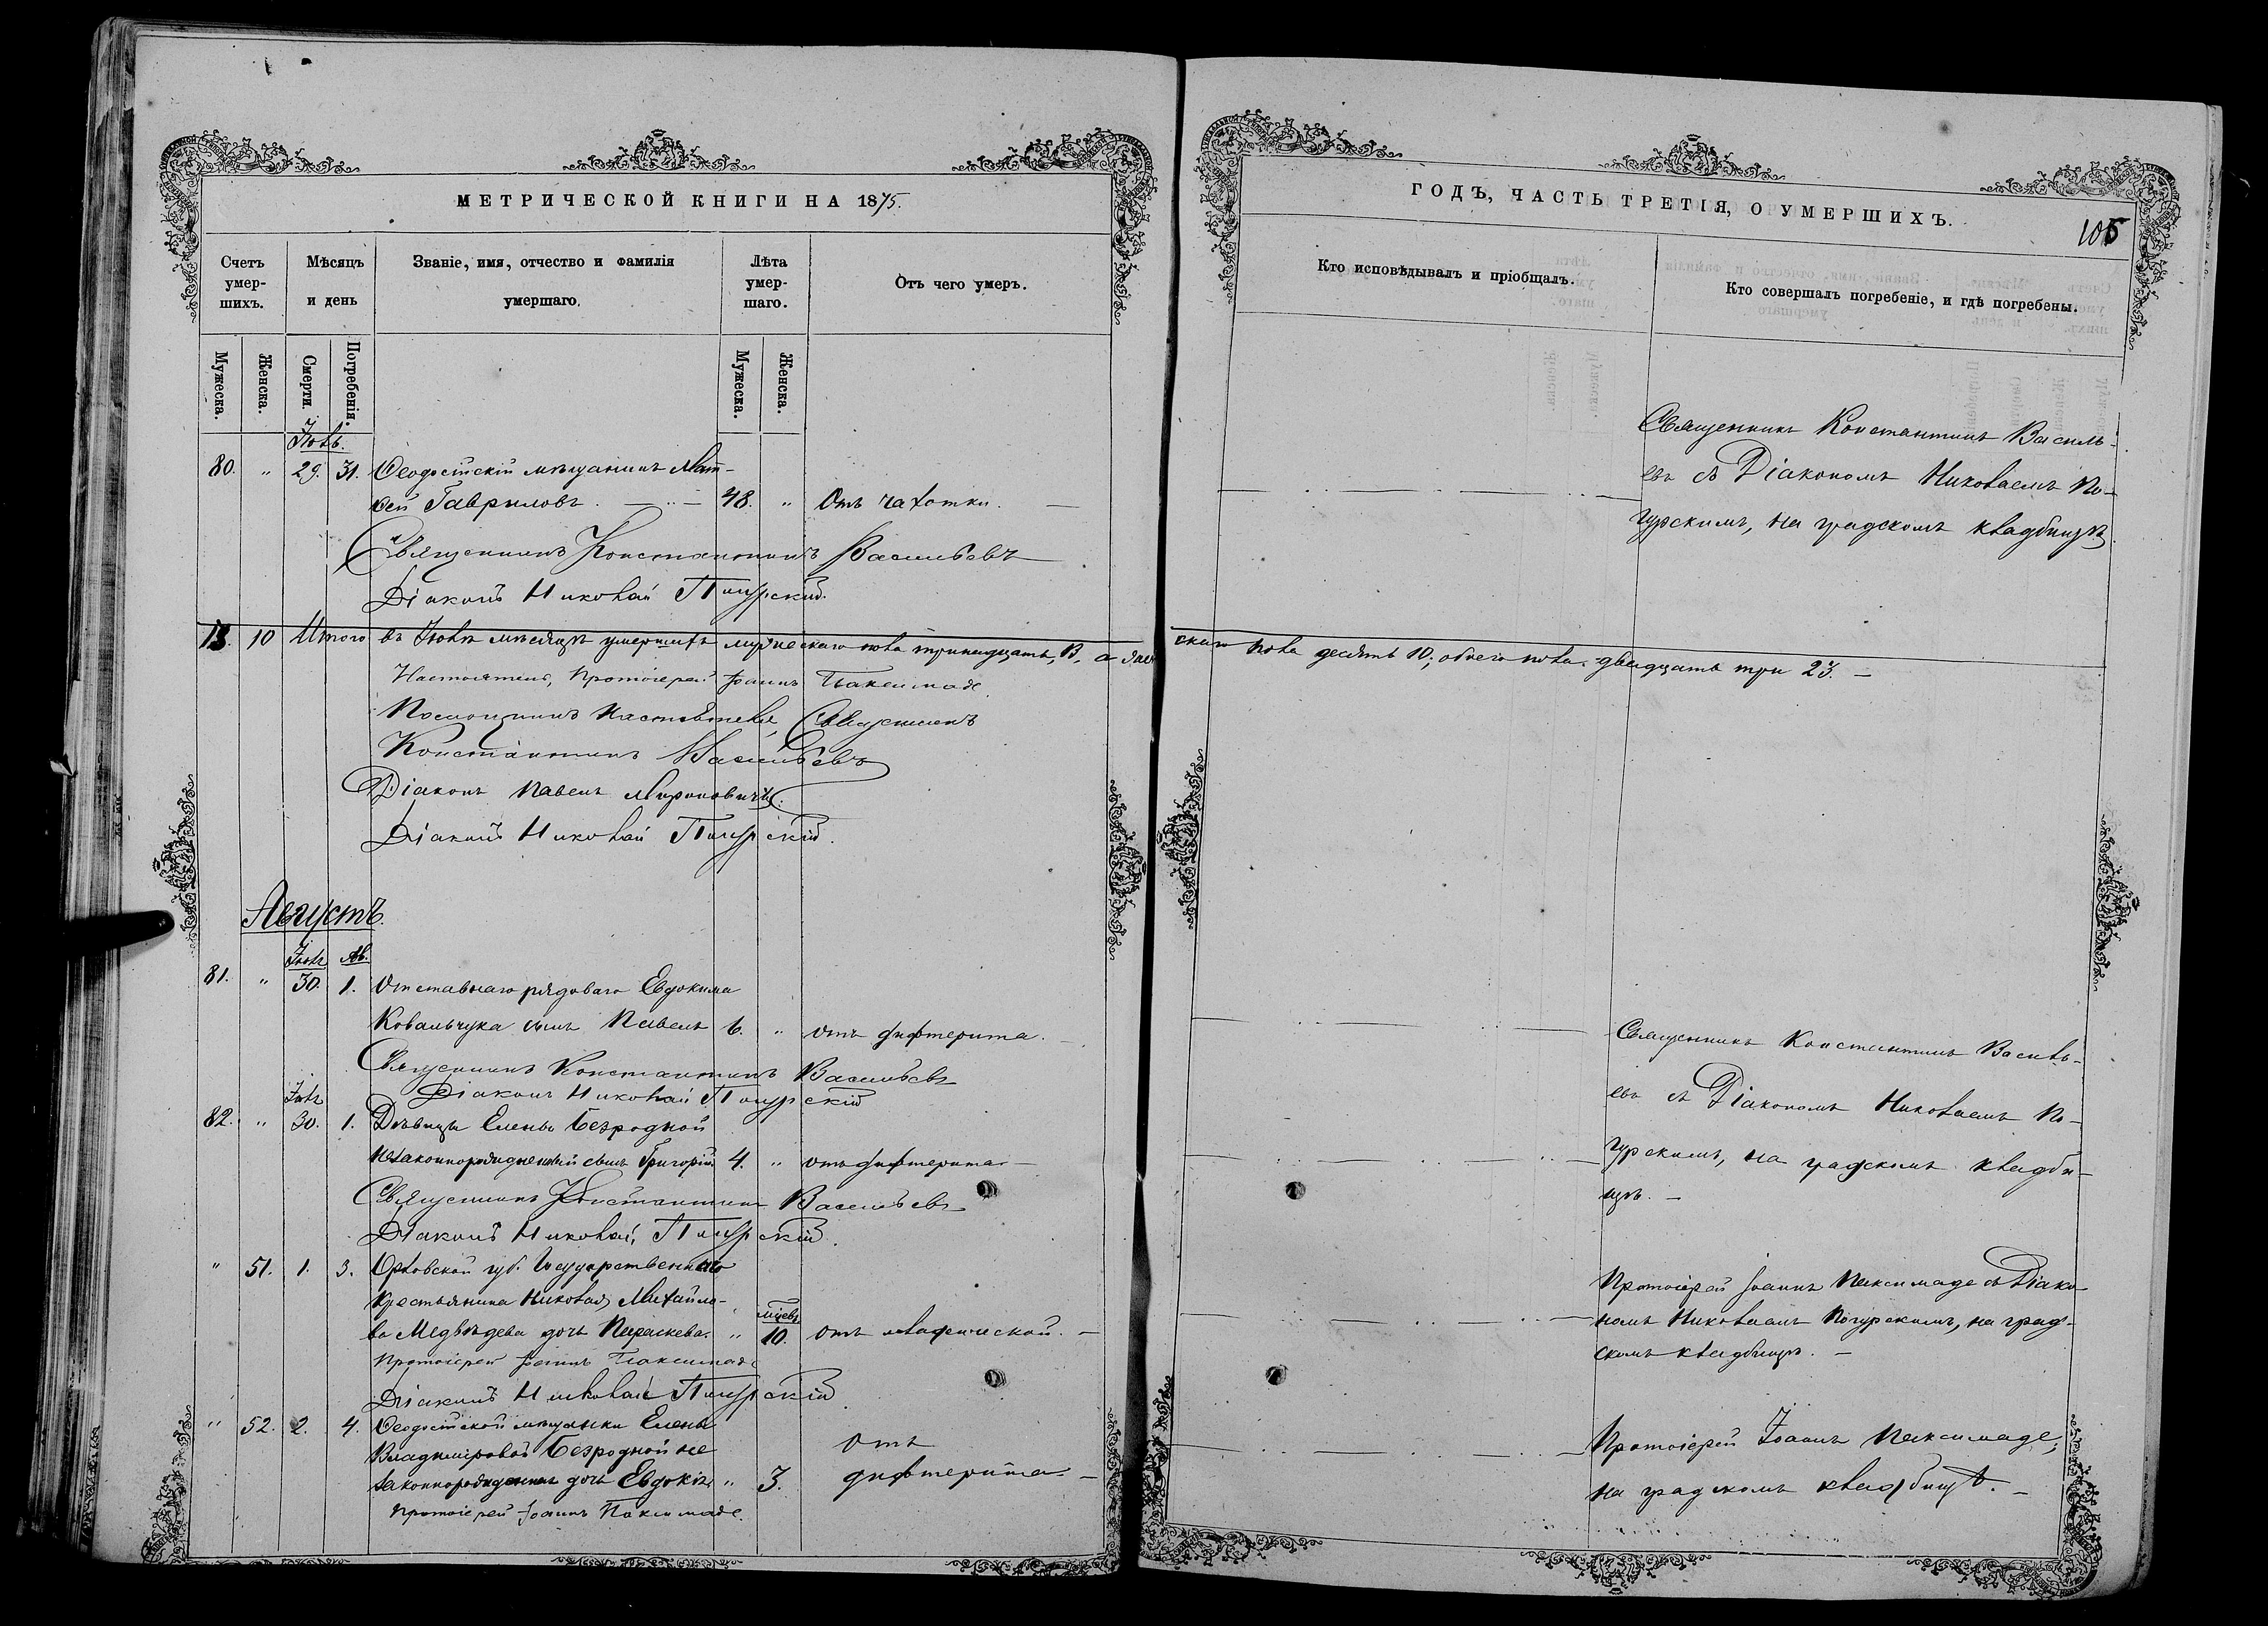 МЕТРИЧЕСКОЙ КНИГИ НА 1875.
Счетъ умер- шихъ.
Мѣсяцъ и день
Званіе, имя, отчество и фамилія умершаго.
Лѣта умер- шаго.
Отъ чего умеръ.
Мужеска.
Женска.
Смерти.
Погребенія.
Мужеска.
Женска.
Іюль.
80. " 29. 31. Ѳеодосійскій мѣщанинъ Мат-
ѳей Гавриловъ. 48. " Отъ чахотки.
Священникъ Константинъ Васильевъ
Діаконъ Николай Погурскій.
13. 10 Итого въ Іюлѣ мѣсяцѣ умершихъ мужескаго пола тринадцать, 13, а жен
Настоятель, Протоіерей Іоаннъ Паксимаде.
Помощникъ Настоятеля, Священникъ
Константинъ Васильевъ
Діаконъ Павелъ Мироновичъ.
Діаконъ Николай Погурскій.
Августъ.
Іюль Ав.
81. " 30. 1. Отставнаго рядоваго Евдокима
Ковальчука сынъ Павелъ 6. " отъ дифтерита.
Священникъ Константинъ Васильевъ
Діаконъ Николай Погурскій
Іюль
82. " 30. 1. Дѣвицы Елены Безродной
незаконнорожденный сынъ Григорій 4. " отъ дифтерита
Священникъ Константинъ Васильевъ
Діаконъ Николай Погурскій.
" 51. 1. 3. Орловской губ. Государственнаго
крестьянина Николая Михайло-
мѣсев.
ва Медвѣдева дочь Параскева. " 10. отъ младенческой.
Протоіерей Іоаннъ Паксимаде
Діаконъ Николай Погурскій
" 52. 2. 4. Ѳеодосійской мѣщанки Елены
Владиміровой Безродной не
законнорожденная дочь Евдокія " 3. отъ дифтерита
Протоіерей Іоаннъ Паксимаде.
ГОДЪ, ЧАСТЬ ТРЕТІЯ, О УМЕРШИХЪ.
105
Кто исповѣдывалъ и пріобщалъ.
Кто совершалъ погребеніе, и гдѣ погребены.
Священникъ Константинъ Василь-
евъ съ Діакономъ Николаемъ По-
гурскимъ, на градскомъ кладбищѣ.
скаго пола десять 10, обоего пола двадцать три 23.
Священникъ Константинъ Василь-
евъ съ Діакономъ Николаемъ По-
гурскимъ, на градскомъ кладби-
щѣ.
Протоіерей Іоаннъ Паксимаде съ Діако-
номъ Николаемъ Погурскимъ, на град-
скомъ кладбищѣ.
Протоіерей Іоаннъ Паксимаде,
на градскомъ кладбищѣ.